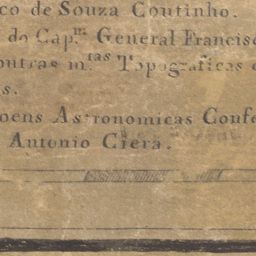 co de Souza Coutinho.
do Cap.ⁿ General Francisc
outras m.ᵗᵃˢ Topograficas e
s.
oens Astronomicas Confe
Antonio Ciera.